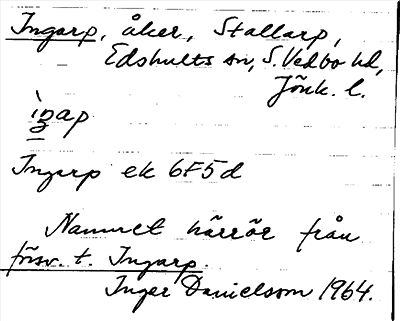 Ingarp, åker, Stallarp,
Edshults sn, S. Vedbo hd,
Jönk. l.
ìŋap
Ingarp ek 6F5d
Namnet härrör från
försv. t. Ingarp.
Inger Danielsson 1964.